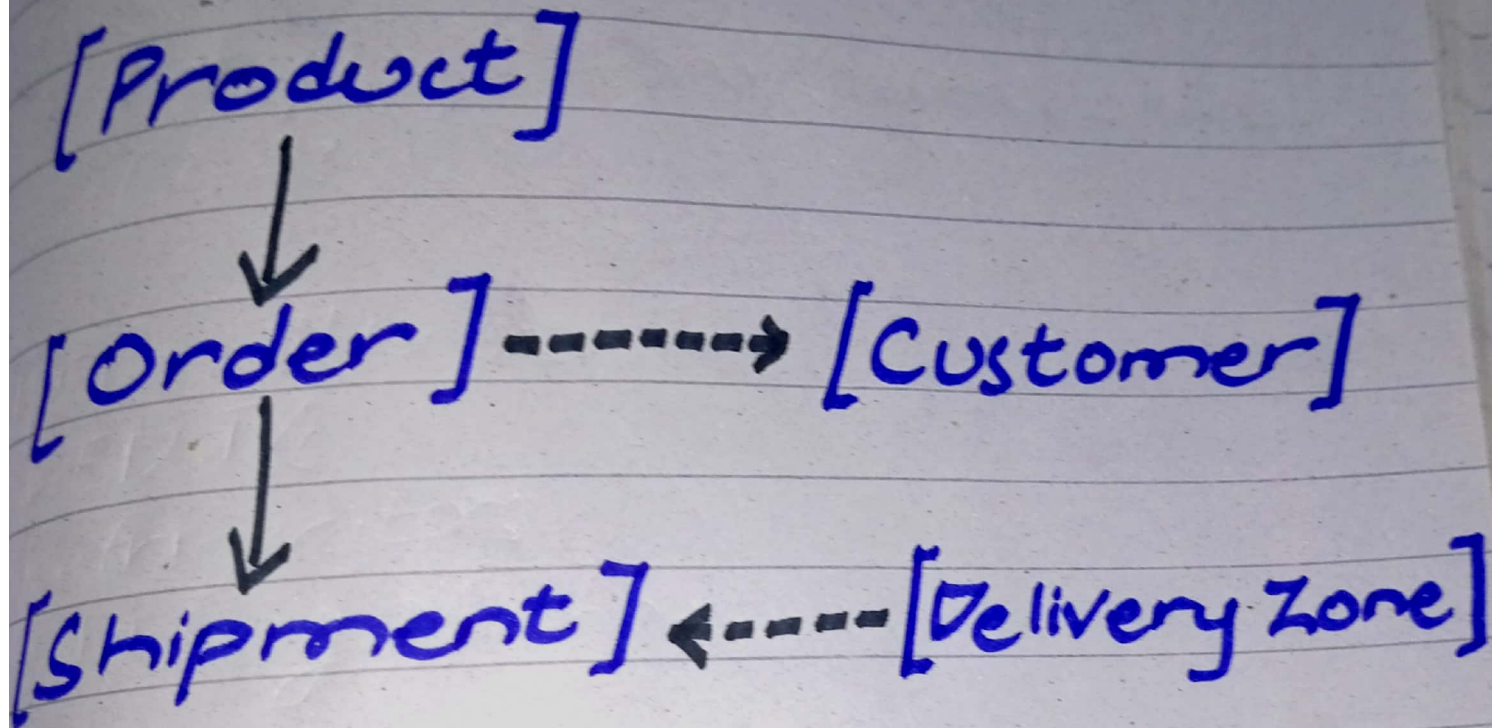 [Product]
[Order] [Customer]
[Shipment] [Delivery Zone]